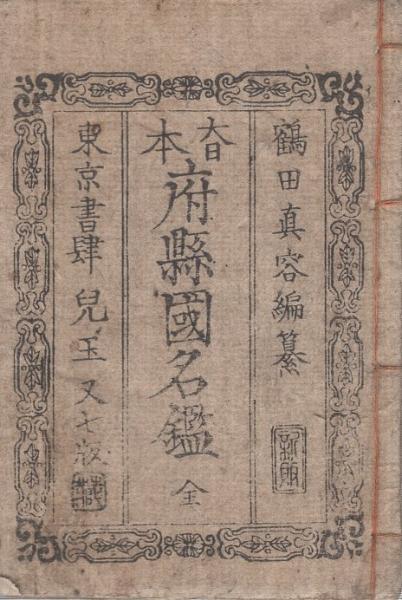 鶴田真容編纂
大日本
府縣國名鑑 全
東京書肆 兒玉又七版